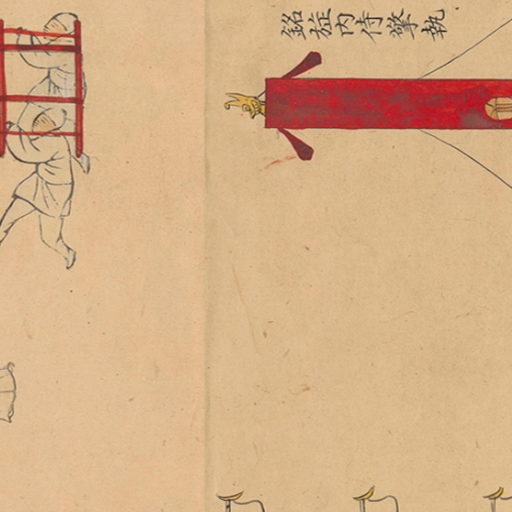 銘旌内侍擎執